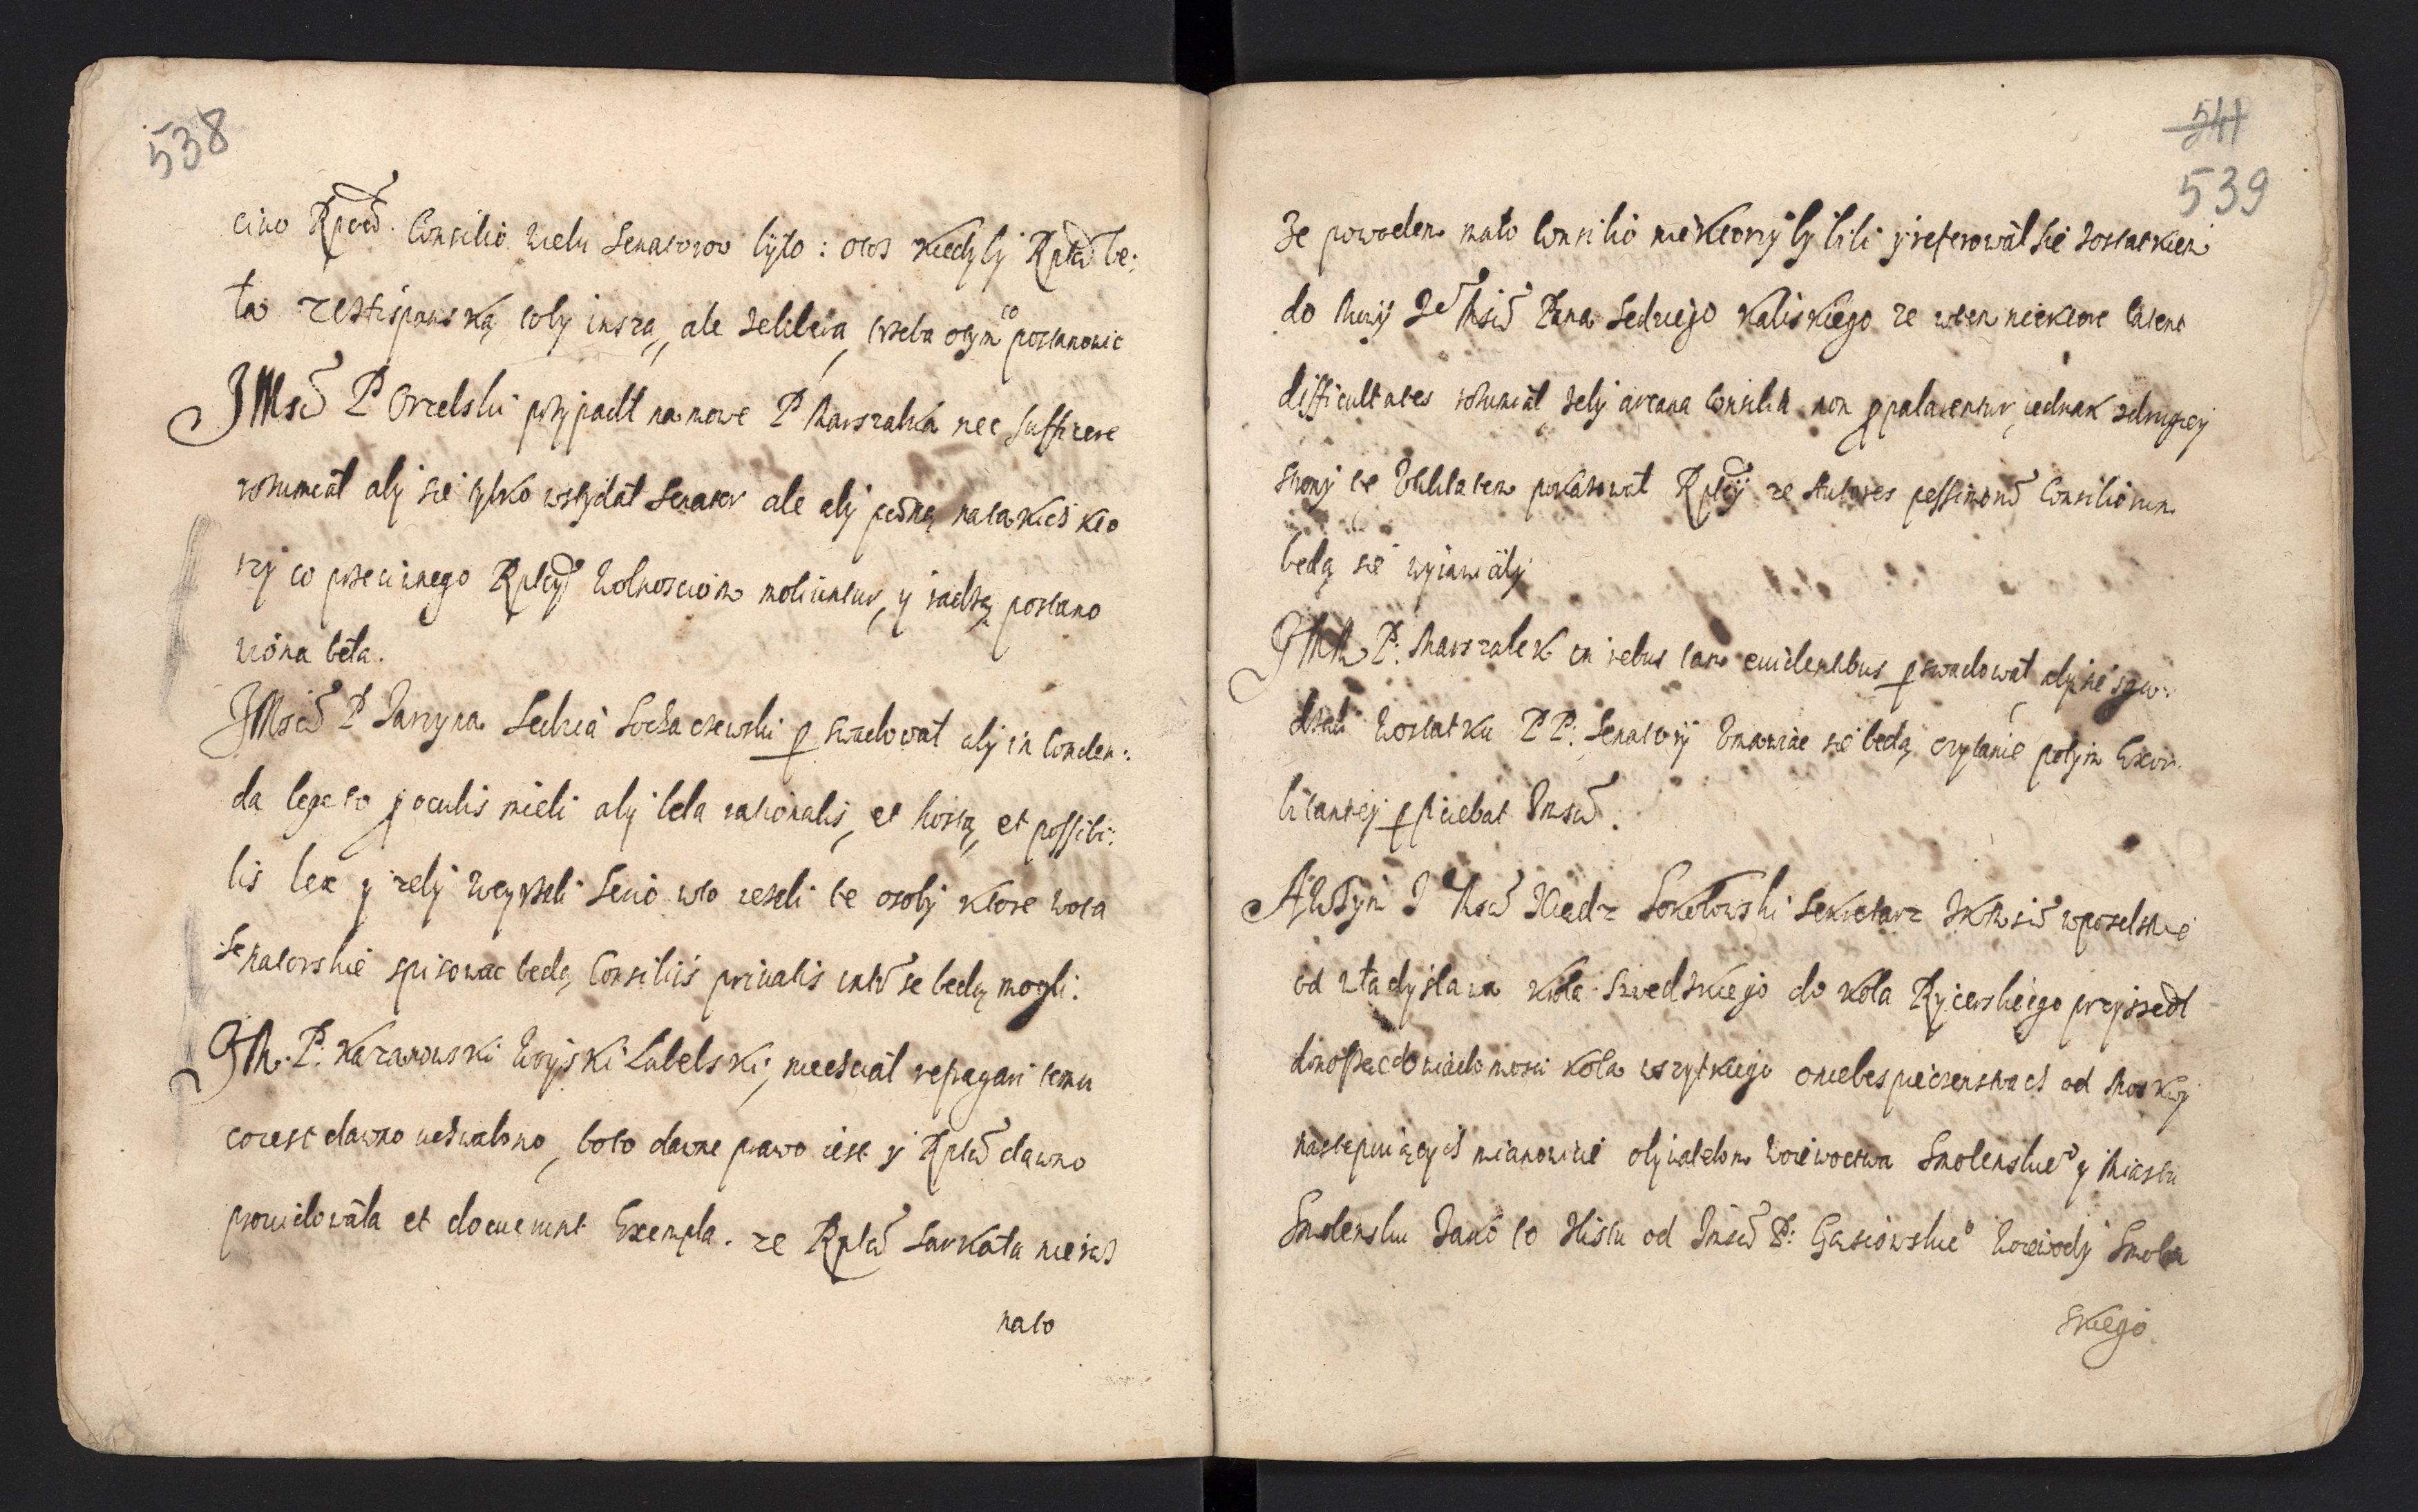 538
ciwo Rptcæ. Consilio wielu Senatorow było: otos kiedyby Rptca be:
ła rzeczhispanską toby insza, ale zelibera, trzeba otym co postanowic
JMsć P Orzelski przypadł namowe P Marszałka nec sufficere
rozumiał aby sie tylko wstydał Senator ale aby pœna natakich kto
rzy co przeciwnego Rptcy Wolnosciom moliuntur, y radzą postano
wiona beła.
JMsć P Jarzyna Sedzia Sochaczewski p swadował aby in conden:
da lege to p oculis mieli aby beła rationalis, et hosta, et possibi:
lis lex y zeby weyrzeli Scio wto iezeli te osoby ktore wota
Senatorskie spisowac beda, Consiliis priuatis interesse beda mogli.
JM. P: Kazanowski Woyski Lubelski, niechciał repagari temu
coiest dawno uchwalono, boto dawne prawo iest y Rptca dawno
prouidowała et docuerunt Exempla. ze Rptca Szarkała nieraz
nato
541
539
Ze powodem mało Consilio niektorzy byli y referował sie zostatkiem
do Mowy Je Msci Pana Sedziego Kaliskiego ze wtem niektore latent
difficultates rozumiał zeby arcana Consilia non ppalarentur, iednak zdrugiey
strony te Vtilitatem pokazował Rptcy ze Autores pessimorum Consiliorum
będą sie wyiawiały
JMM P: Marszałek in rebus tam euidentibus pswadował aby sie zgo:
dzili wostatku PP: Senatorzy Vmawiac sie będą czytanie potym Exor
bitantiey pficiebat Jmsc.
A Wtym J Msc Xiadz Sokołowski Sekretarz JKMsci wposelstwie
od Władysława Krola Szwedzkiego do Koła Rycerskiego przyszedł
donosząc do wiadomosci Koła wszytkiego oniebespieczenstwach od Moskwy
nastepuiących mianowicie obywatelom Woiewoctwa Smolenskie° y Miastu
Smolensku Jako to zlistu od Jmsci P: Gąsiowskie° Woiewody Smolen
skiego